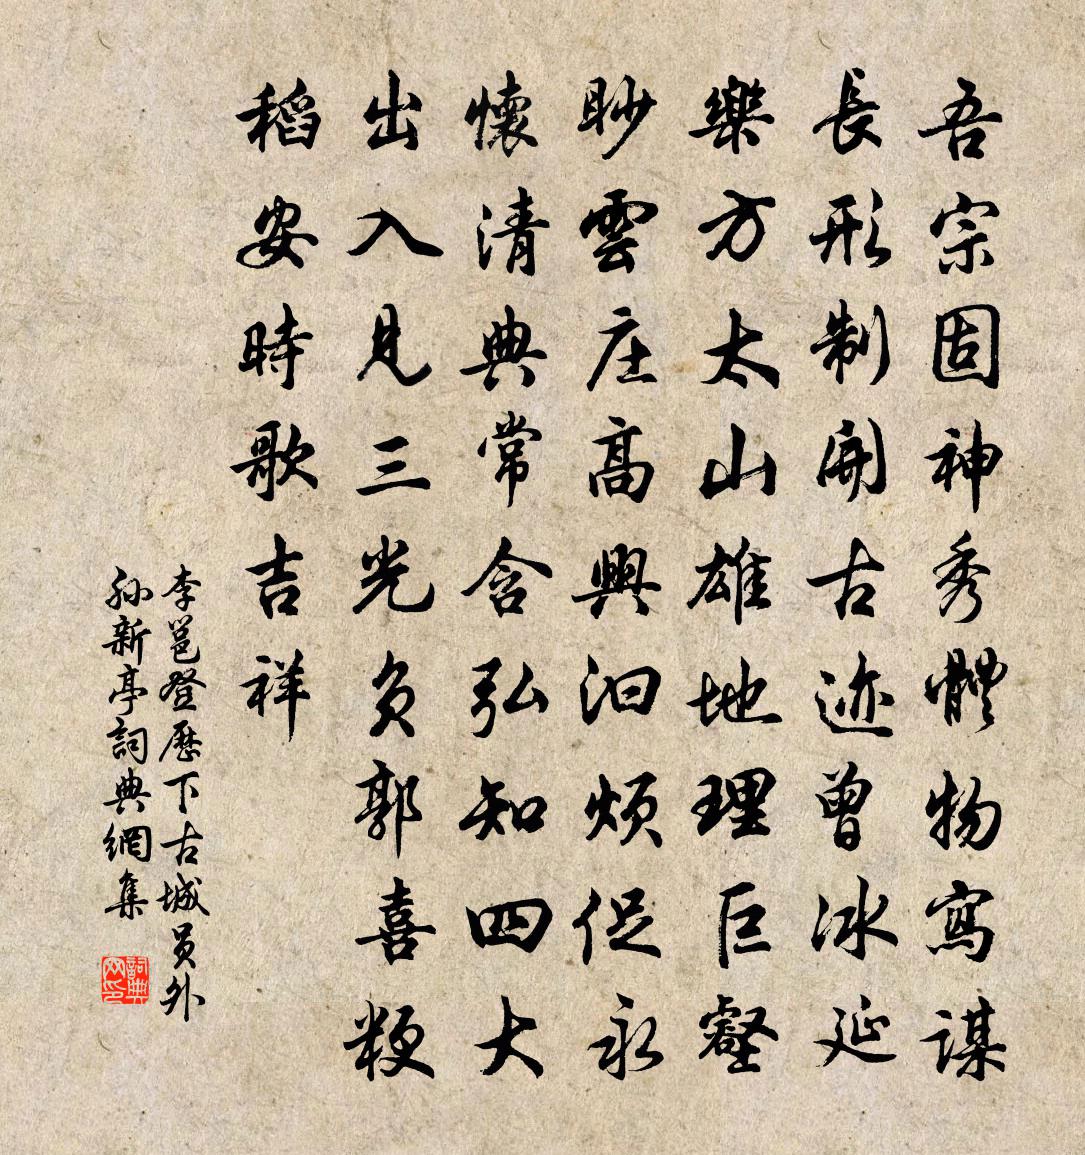 吾宗固神秀體物寫謀
長形制開古迹曾冰延
樂方太山雄地理巨壑
眇雲庄高興汩煩促永
懷清典常含弘知四大
出入見三光負郭喜粳
稻安時歌吉祥
李邕登歷下古城員外
孫新亭詞典網集
詞典网印